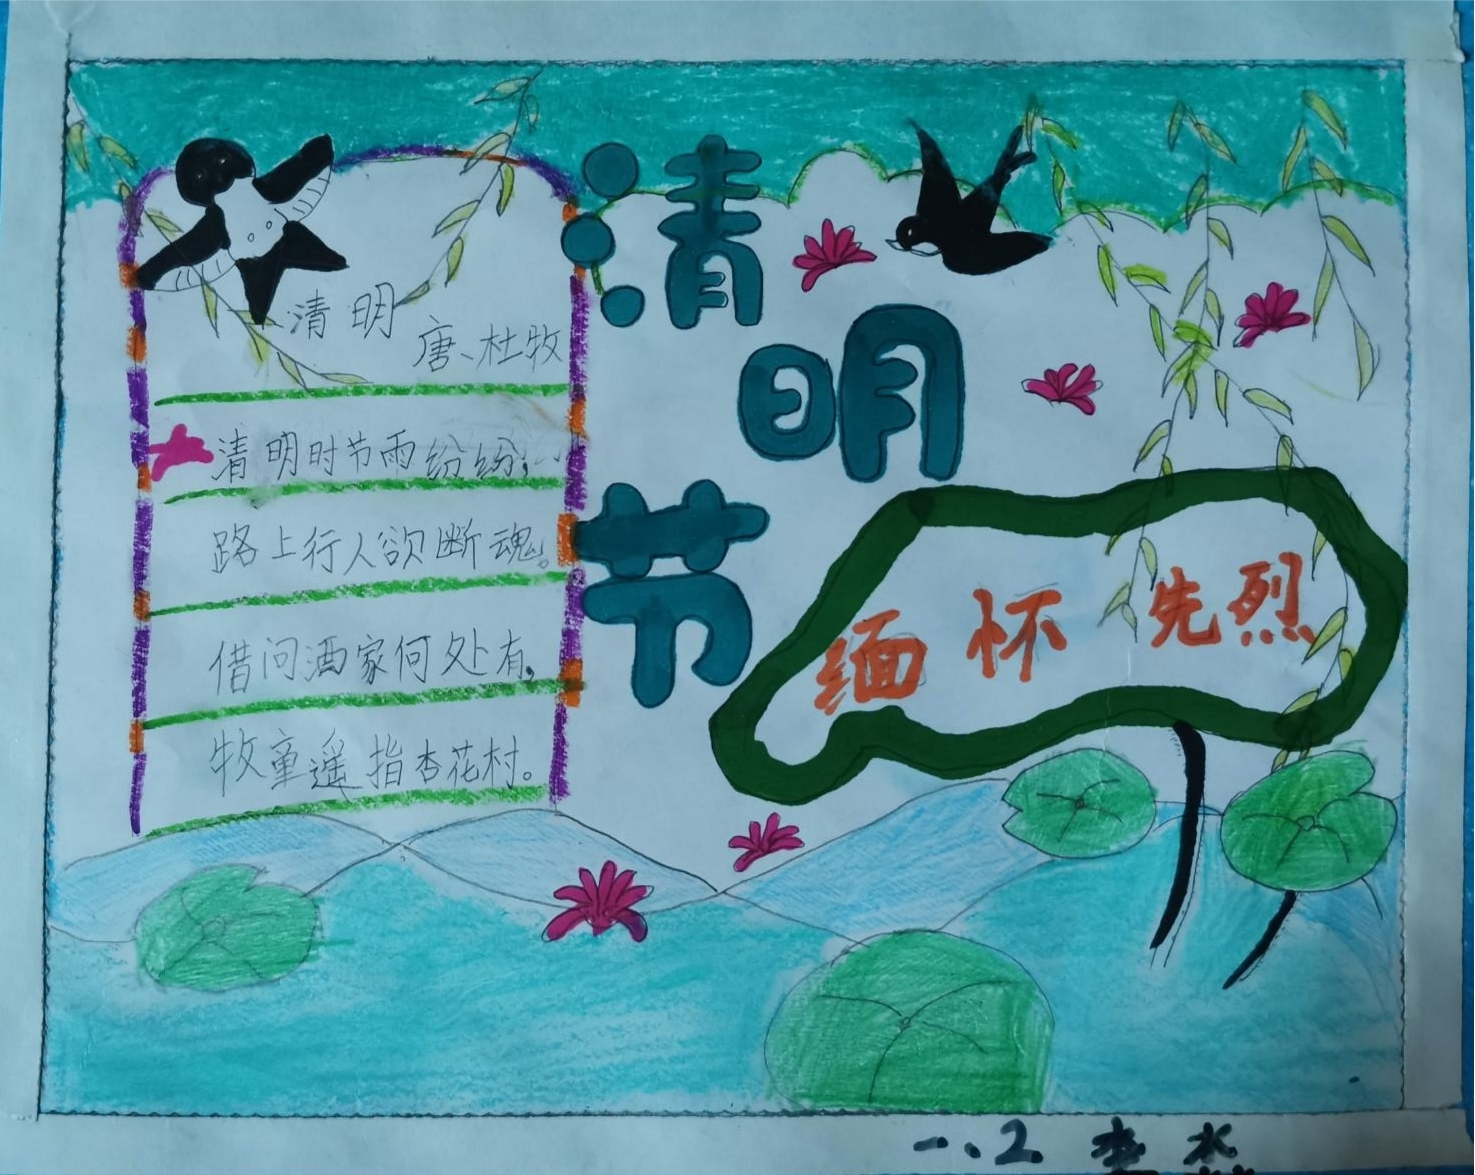 清明
唐、杜牧
清明时节雨纷纷,
路上行人欲断魂。
借问酒家何处有,
牧童遥指杏花村。
清
明
节
缅怀先烈
一、2 李杰